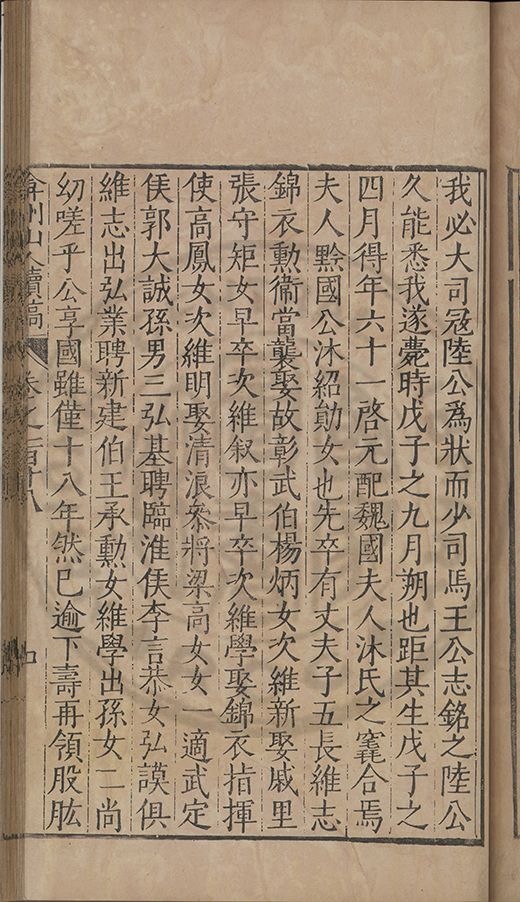 我必大司冦陸公爲狀而少司馬王公志銘之陸公
久能悉我遂薨時戊子之九月朔也距其生戊子之
四月得年六十一啓元配魏國夫人沐氏之窀合焉
夫人黔國公沐紹勛女也先卒有丈夫子五長維志
錦衣勲衛當襲娶故彰武伯楊炳女次維新娶戚里
張守矩女早卒次維叙亦早卒次維學娶錦衣指揮
使高鳳女次維明娶清浪叅將梁高女女一適武定
侯郭大誠孫男三弘基聘臨淮侯李言恭女弘謨俱
維志出弘業聘新建伯王承勲女維學出孫女二尚
幼嗟乎公享國雖僅十八年然已逾下壽再領股肱
弇州山人續稿 卷之一百十八